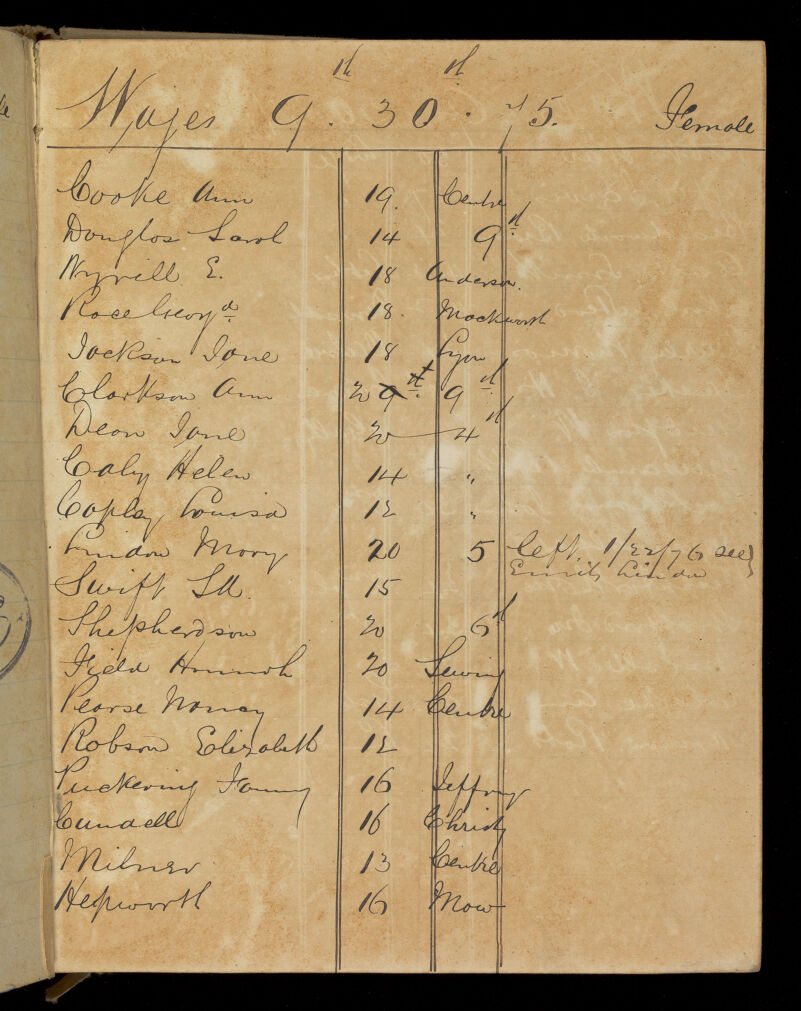 Wages 9th. 30th. 75. Female
Cooke Ann 19. Centre
Douglas Sarah 14 9th
Wyvill E. 18 Anderson.
Race Georgd 18. Mackworth
Jackson Jane 18 Lyon
Clarkson Ann 20 9th
Dean Jane 20 4th
Caley Helen 14 "
Copley Louisa 12 "
Lindon Mary 20 5 left. 1/22/76 see
Lindon
Swift 15
Shepherdson 20 6th
Field Hannah 20 Sewing
Pearse Nancy 14 Centre
Robson Elizabeth 12
Puckering Fanny 16 Jeffrey
Cundell 16 Christy
Milner 13 Centre
Hepworth 16 Mow